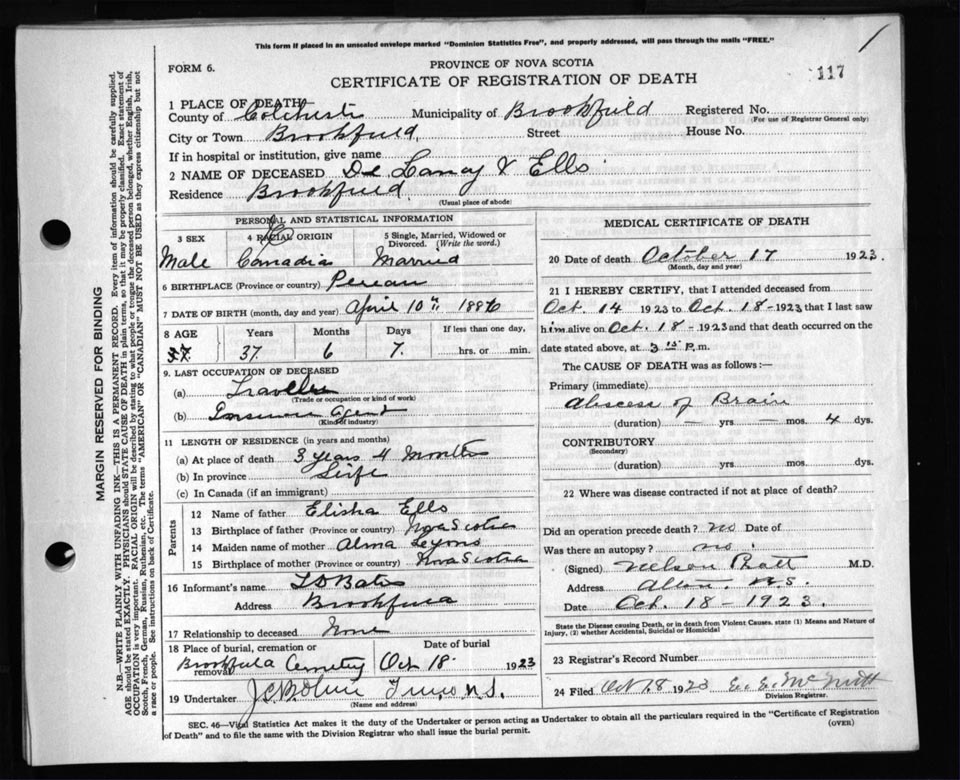 This form if placed in an unsealed envelope marked "Dominion Statistics Free", and properly addressed, will pass through the mails "FREE."
FORM 6.
PROVINCE OF NOVA SCOTIA
117
CERTIFICATE OF REGISTRATION OF DEATH
1 PLACE OF DEATH
County of Colchester Municipality of Brookfield Registered No.
(For use of Registrar General only)
City or Town Brookfield Street House No.
If in hospital or institution, give name
2 NAME OF DECEASED De Lancy Ells
Residence Brookfield
(Usual place of abode)
PERSONAL AND STATISTICAL INFORMATION
3 SEX
Male
4 RACIAL ORIGIN
Canadian
5 Single, Married, Widowed or Divorced. (Write the word.)
Married
6 BIRTHPLACE (Province or country) Pereau
7 DATE OF BIRTH (month, day and year) April 10
8 AGE Years Months Days If less than one day,
37 37 6 7 hrs. or min.
9. LAST OCCUPATION OF DECEASED
(a) Traveller
(Trade or occupation or kind of work)
(b) Insurance Agent
(Kind of industry)
11 LENGTH OF RESIDENCE (in years and months)
(a) At place of death 3 years 4 Months
(b) In province Life
(c) In Canada (if an immigrant)
Parents
12 Name of father Elisha Ells
13 Birthplace of father (Province or country) Nova Scotia
14 Maiden name of mother Alma Lyons
15 Birthplace of mother (Province or country) Nova Scotia
16 Informant's name Bates
Address Brookfield
17 Relationship to deceased None
18 Place of burial, cremation or removal Date of burial
Brookfield Cemetery Oct 18 1923
19 Undertaker Truro N.S.
(Name and address)
MEDICAL CERTIFICATE OF DEATH
20 Date of death October 17 1923.
(Month, day and year)
21 I HEREBY CERTIFY, that I attended deceased from
Oct. 14 1923 to Oct. 18 - 1923 that I last saw
him alive on Oct. 18 - 1923 and that death occurred on the
date stated above, at 3 15 P.m.
The CAUSE OF DEATH was as follows:—
Primary (immediate)
Abscess of Brain
(duration) — yrs — mos. 4 dys.
CONTRIBUTORY
(Secondary)
(duration) yrs. mos. dys.
22 Where was disease contracted if not at place of death?
Did an operation precede death? no Date of
Was there an autopsy? no
(Signed) Nelson Pratt M.D.
Address N.S.
Date Oct. 18 - 1923.
State the Disease causing Death, or in death from Violent Causes, state (1) Means and Nature of
Injury, (2) whether Accidental, Suicidal or Homicidal
23 Registrar's Record Number
24 Filed Oct. 18 1923
Division Registrar.
SEC. 46—Vital Statistics Act makes it the duty of the Undertaker or person acting as Undertaker to obtain all the particulars required in the "Certificate of Registration
of Death" and to file the same with the Division Registrar who shall issue the burial permit.
(OVER)
MARGIN RESERVED FOR BINDING
N.B.—WRITE PLAINLY WITH UNFADING INK—THIS IS A PERMANENT RECORD. Every item of information should be carefully supplied.
AGE should be stated EXACTLY. PHYSICIANS should STATE CAUSE OF DEATH in plain terms, so that it may be properly classified. Exact statement of
OCCUPATION is very important. RACIAL ORIGIN will be described by stating to what people or tongue the deceased person belonged, whether English, Irish,
Scotch, French, German, Russian, Ruthenian, etc. The terms "AMERICAN" OR "CANADIAN" MUST NOT BE USED as they express citizenship but not
a race or people. See instructions on back of Certificate.